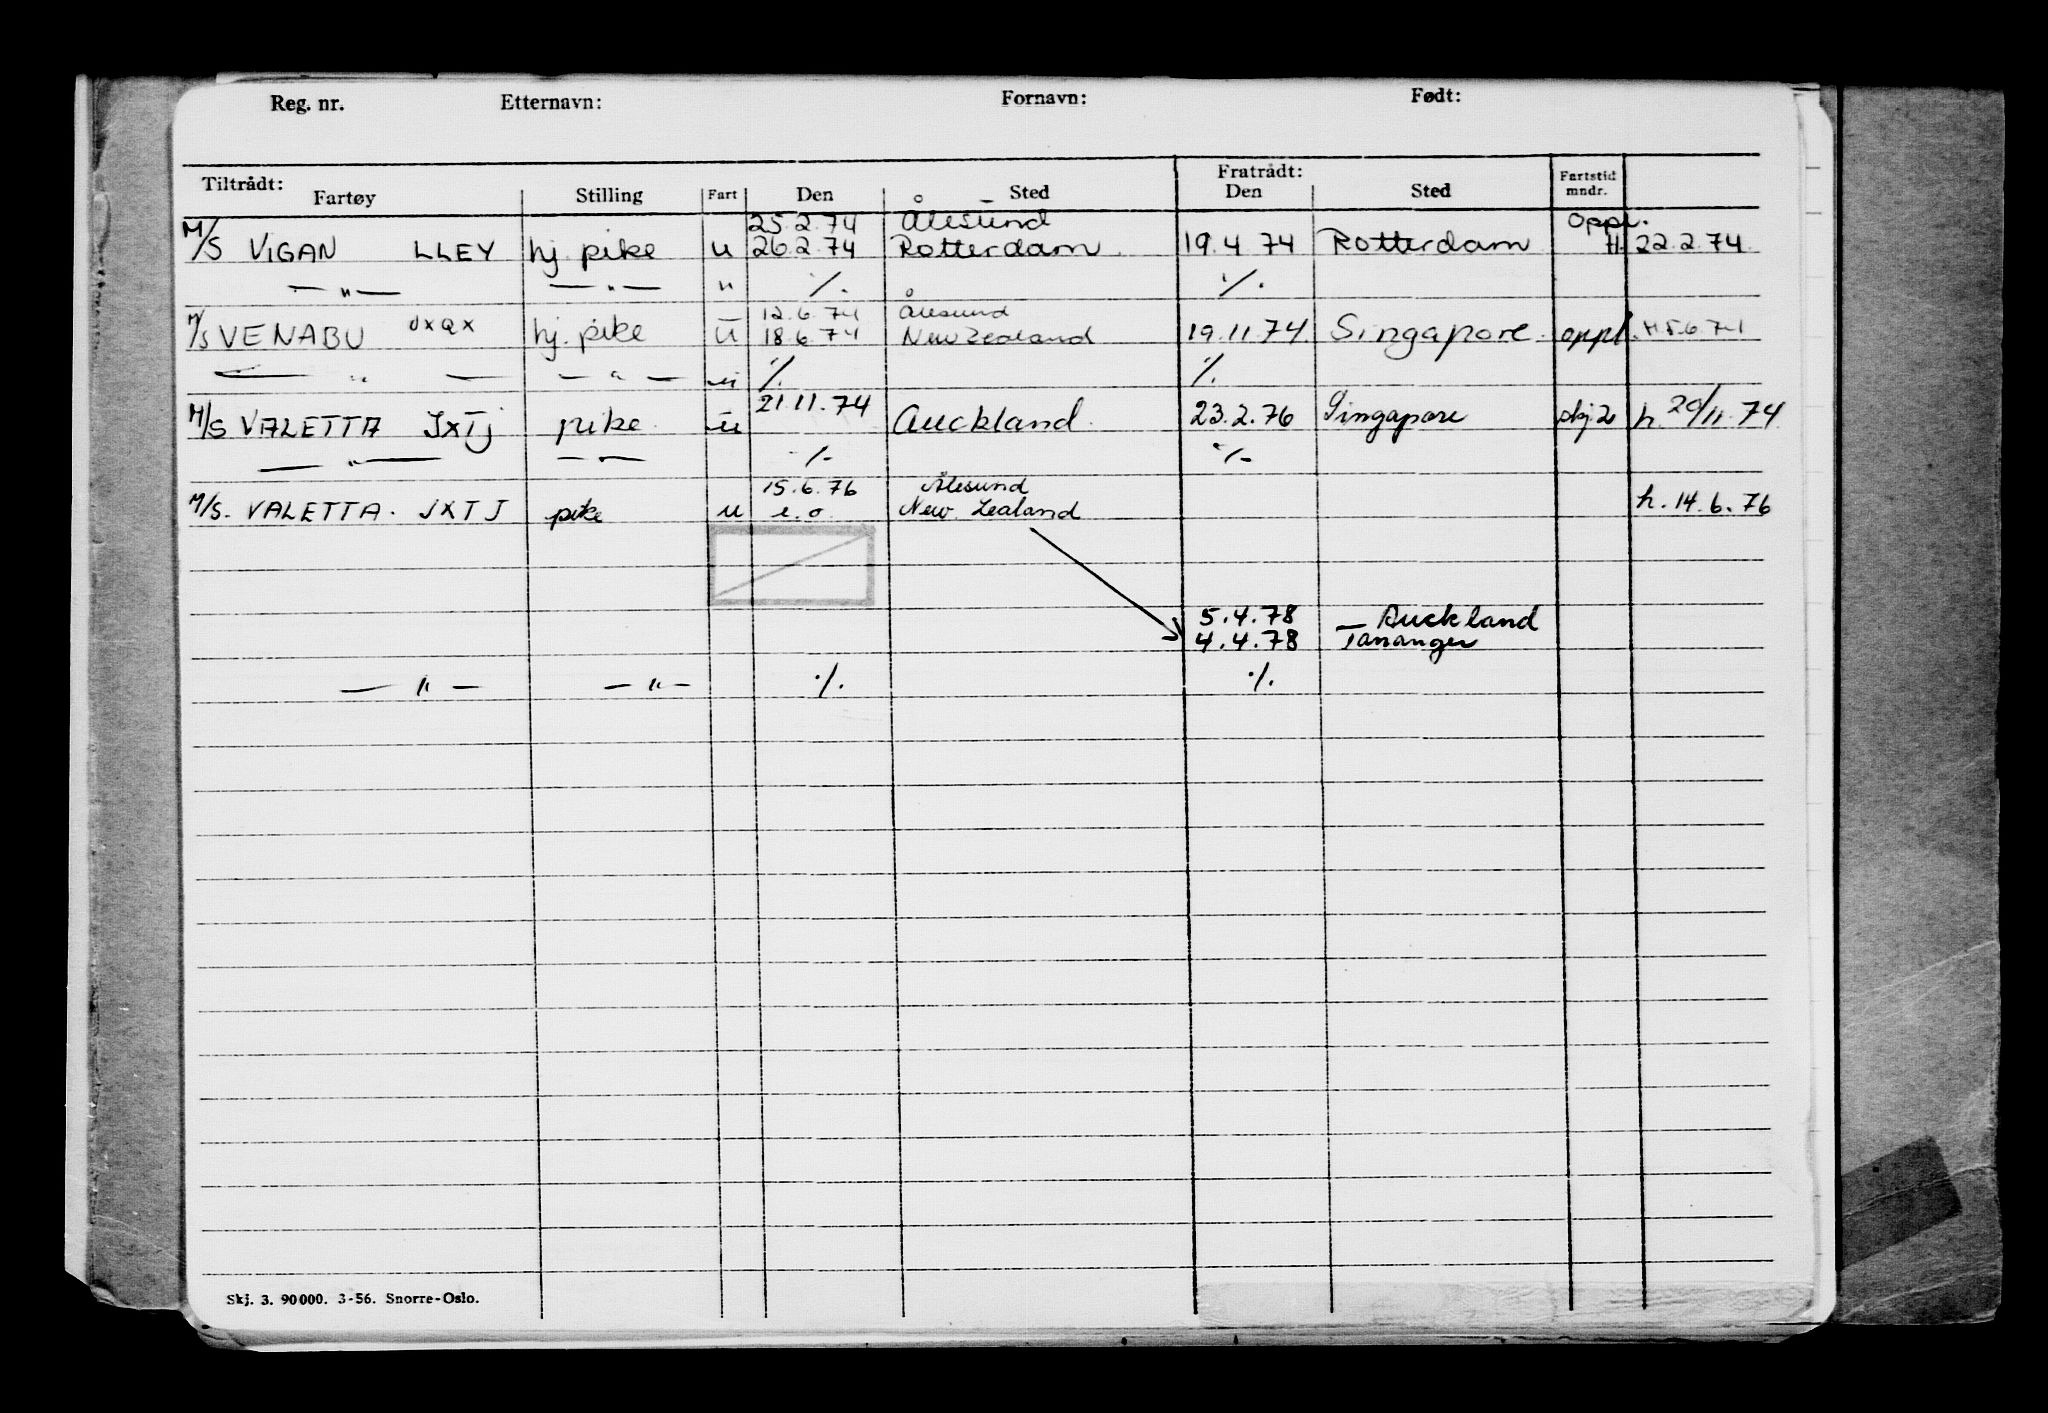 Reg. nr. Etternavn: Fornavn: Født:
Tiltrådt: Fratrådt:
Fartøy Stilling Fart Den Sted Den Sted Fartstid mndr.
25.2.74 Ålesund Oppl.
M/S VIGAN LLEY hj. pike u 26.2.74 Rotterdam 19.4.74 Rotterdam H. 22.2.74
— " — — " — " ·/. ·/.
12.6.74 Ålesund
M/S VENABU JXQX hj. pike u 18.6.74 New Zealand 19.11.74. Singapore. oppl. H. 5.6.74
— " — — " — " ·/. ·/.
21.11.74
M/S VALETTA JXTJ pike u Auckland 23.2.76 Singapore skj 2 h. 20/11.74
— " — — " — ·/. ·/.
15.6.76 Ålesund
M/S. VALETTA. JXTJ pike u e.o. New Zealand h. 14.6.76
5.4.78 — Auckland
4.4.78 Tananger
— " — — " — ·/. ·/.
Skj. 3. 90000. 3-56. Snorre-Oslo.